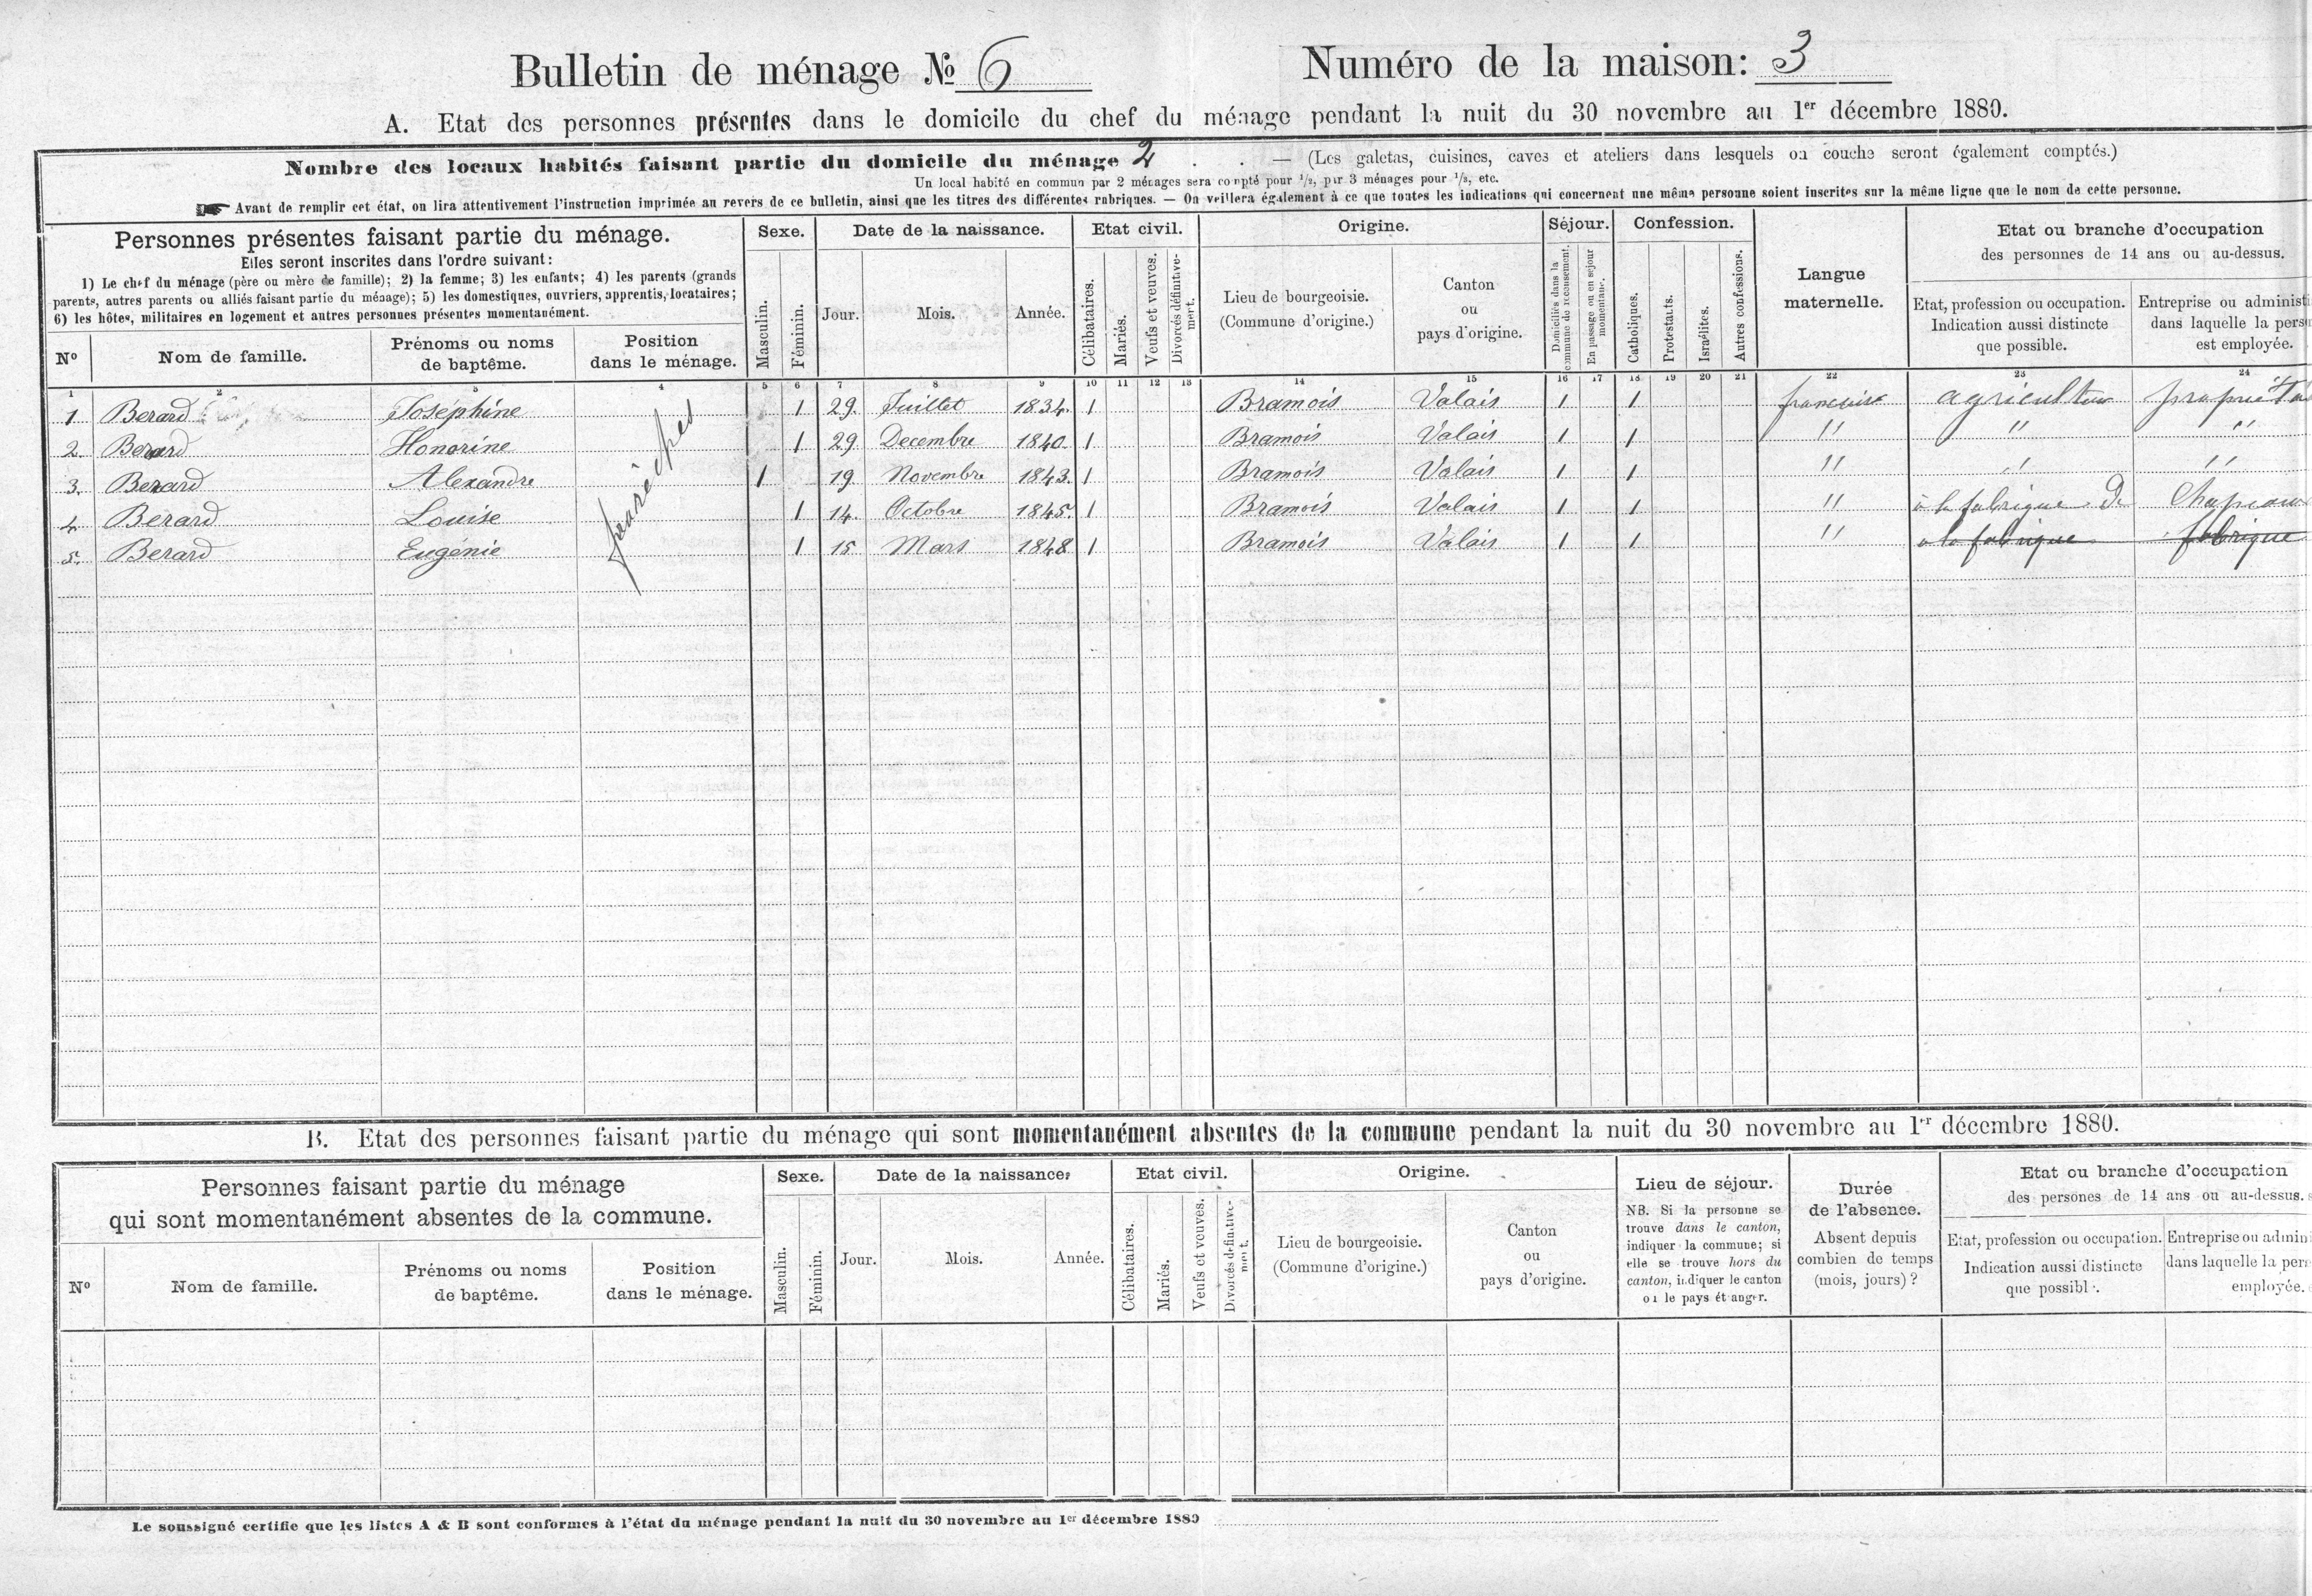 Bulletin de ménage № 6 Numéro de la maison: 3
A. Etat des personnes présentes dans le domicile du chef du ménage pendant la nuit du 30 novembre au 1er décembre 1880.
Nombre des locaux habités faisant partie du domicile du ménage 2 . . — (Les galetas, cuisines, caves et ateliers dans lesquels on couche seront également comptés.)
Un local habité en commun par 2 ménages sera compté pour 1/2, par 3 ménages pour 1/3, etc.
☛ Avant de remplir cet état, on lira attentivement l'instruction imprimée au revers de ce bulletin, ainsi que les titres des différentes rubriques. — On veillera également à ce que toutes les indications qui concernent une même personne soient inscrites sur la même ligne que le nom de cette personne.
Personnes présentes faisant partie du ménage.
Elles seront inscrites dans l'ordre suivant:
1) Le chef du ménage (père ou mère de famille); 2) la femme; 3) les enfants; 4) les parents (grands
parents, autres parents ou alliés faisant partie du ménage); 5) les domestiques, ouvriers, apprentis, locataires;
6) les hôtes, militaires en logement et autres personnes présentes momentanément.
Nº
Nom de famille.
Prénoms ou noms
de baptême.
Position
dans le ménage.
Sexe.
Masculin.
Féminin.
Date de la naissance.
Jour.
Mois.
Année.
Etat civil.
Célibataires.
Mariés.
Veufs et veuves.
Divorcés définitive-
ment.
Origine.
Lieu de bourgeoisie.
(Commune d'origine.)
Canton
ou
pays d'origine.
Séjour.
Domiciliés dans la
commune de recensement.
En passage ou en séjour
momentané.
Confession.
Catholiques.
Protestants.
Israélites.
Autres confessions.
Langue
maternelle.
Etat ou branche d'occupation
des personnes de 14 ans ou au-dessus.
Etat, profession ou occupation.
Indication aussi distincte
que possible.
Entreprise ou administ
dans laquelle la pers
est employée.
1 2 3 4 5 6 7 8 9 10 11 12 13 14 15 16 17 18 19 20 21 22 23 24
1 Berard Joséphine 1 29. Juillet 1834. 1 Bramois Valais 1 1 française agriculteur propriéta
2 Berard Honorine 1 29 Decembre 1840. 1 Bramois Valais 1 1 " " "
3. Berard Alexandre 1 19 Novembre 1843. 1 Bramois Valais 1 1 " " "
4. Berard Louise 1 14. Octobre 1845. 1 Bramois Valais 1 1 " à la fabrique De Chapeaux
5. Berard Eugénie 1 15 Mars 1848 1 Bramois Valais 1 1 " a la fabrique fabrique
B. Etat des personnes faisant partie du ménage qui sont momentanément absentes de la commune pendant la nuit du 30 novembre au 1er décembre 1880.
Personnes faisant partie du ménage
qui sont momentanément absentes de la commune.
Nº
Nom de famille.
Prénoms ou noms
de baptême.
Position
dans le ménage.
Sexe.
Masculin.
Féminin.
Date de la naissance.
Jour.
Mois.
Année.
Etat civil.
Célibataires.
Mariés.
Veufs et veuves.
Divorcés définitive-
ment.
Origine.
Lieu de bourgeoisie.
(Commune d'origine.)
Canton
ou
pays d'origine.
Lieu de séjour.
NB. Si la personne se
trouve dans le canton,
indiquer la commune; si
elle se trouve hors du
canton, indiquer le canton
ou le pays étranger.
Durée
de l'absence.
Absent depuis
combien de temps
(mois, jours)?
Etat ou branche d'occupation
des persones de 14 ans ou au-dessus.
Etat, profession ou occupation.
Indication aussi distincte
que possible.
Entreprise ou admini
dans laquelle la per
employée.
Le soussigné certifie que les listes A & B sont conformes à l'état du ménage pendant la nuit du 30 novembre au 1er décembre 1880